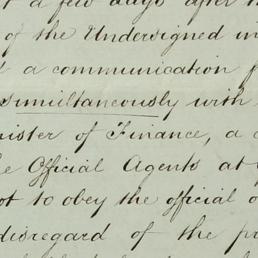 a few days after
of the Undersigned in
a communication
simultaneously with
nister of Finance, a
Official Agents at
to obey the official o
disregard of the pr